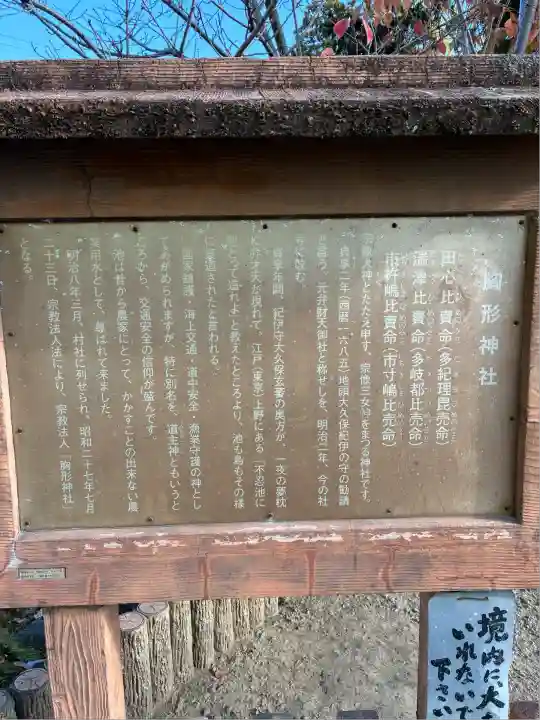 胸形神社
田心比賣命(多紀理毘売命)
湍津比賣命(多岐都比売命)
市杵嶋比賣命(市寸嶋比売命)
宗像大神とたたえ申す。宗像三女神をまつる神社です。
貞享二年(西暦一六八五)地頭大久保紀伊の守の勧請
元弁財天御社と称せしを、明治二年、今の社
号に改む
貞享年間、紀伊守大久保玄蕃の奥方が、一夜の夢枕
に弁才天が現れて、江戸(東京)上野にある「不忍池に
形どって造れよ」と教えたところより、池も島もその様
に築造されたと言われる。
国家鎮護・海上交通・道中安全・漁業守護の神とし
てあがめられますが、特に別名を、道主神ともいうと
ころから、交通安全の信仰が盛んです。
池は昔から農家にとって、かかすことの出来ない農
業用水として、尊ばれて来ました。
明治八年三月、村社に列せられ、昭和二十七年七月
二十三日、宗教法人法により、宗教法人「胸形神社」
となる。
境内に犬
いれないで
下さい